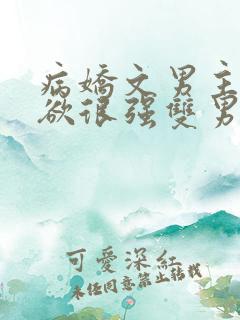 病嬌文男主
欲很强雙男
可愛深紅
未经同意禁止转载